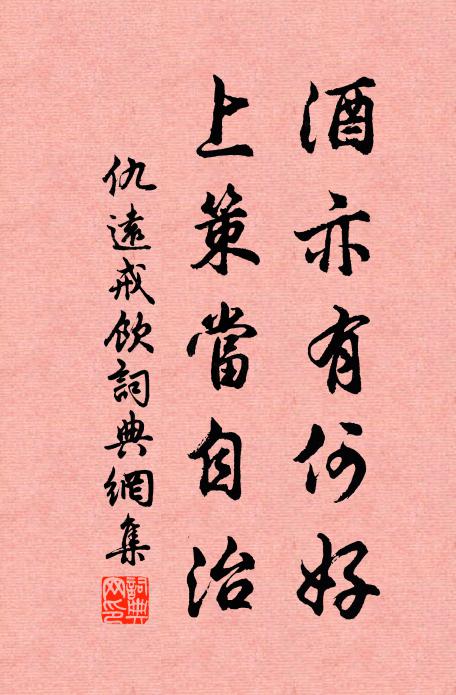 酒亦有何好
上策當自治
仇遠戒飲詞典網集
詞典
网印